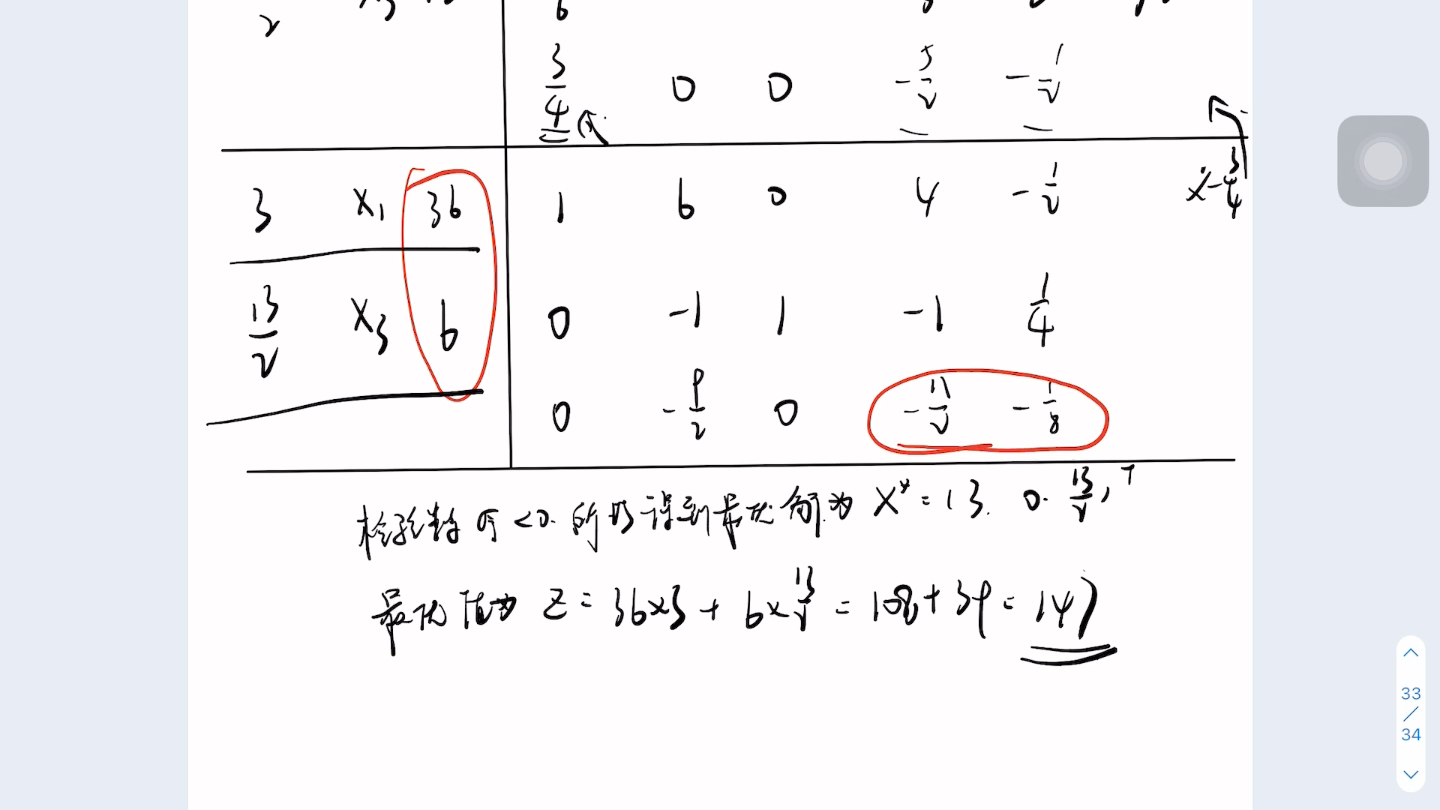 3/4 0 0 -5/2 -1/2
3 x₁ 36 1 6 0 4 -1/2
x-3/4
13/2 x₃ 6 0 -1 1 -1 1/4
0 -9/2 0 -11/2 -1/8
检验数σ<0. 所以得到最优解为 X* = (3. 0. 13/2)ᵀ
最优值为 Z = 36×3 + 6×13/2 = 108+39 = 147
33
/
34